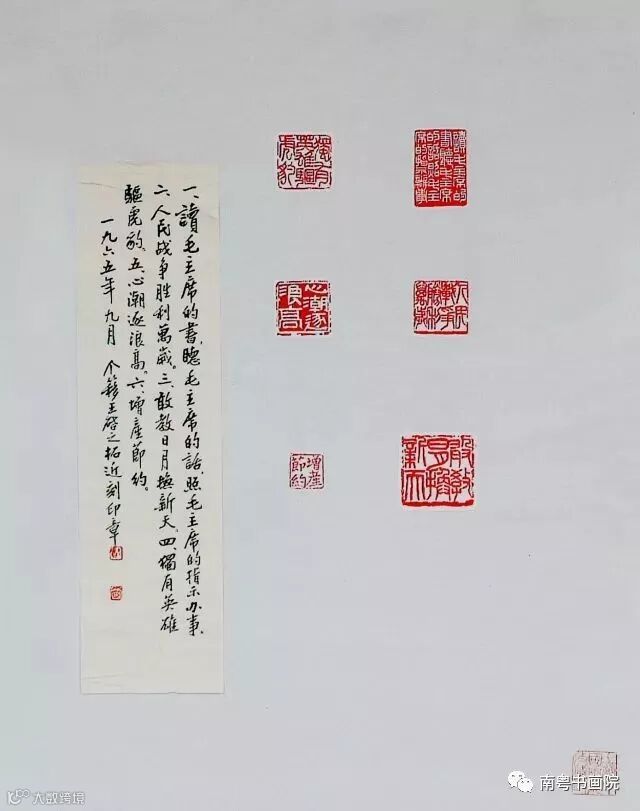 讀毛主席的
書聽毛主席
的話照毛主
席的指示辦事
人民
戰爭
勝利
萬歲
敢教
日月換
新天
獨有
英雄驅
虎豹
心潮逐
浪高
增産
節約
一、讀毛主席的書、聽毛主席的話、照毛主席的指示办事、
二、人民战争胜利萬歲。三、敢教日月換新天。四、獨有英雄
驅虎豹。五、心潮逐浪高。六、增産節約。
一九六五年九月 个簃王啓之拓近刻印章
大数跨境
南粤书画院